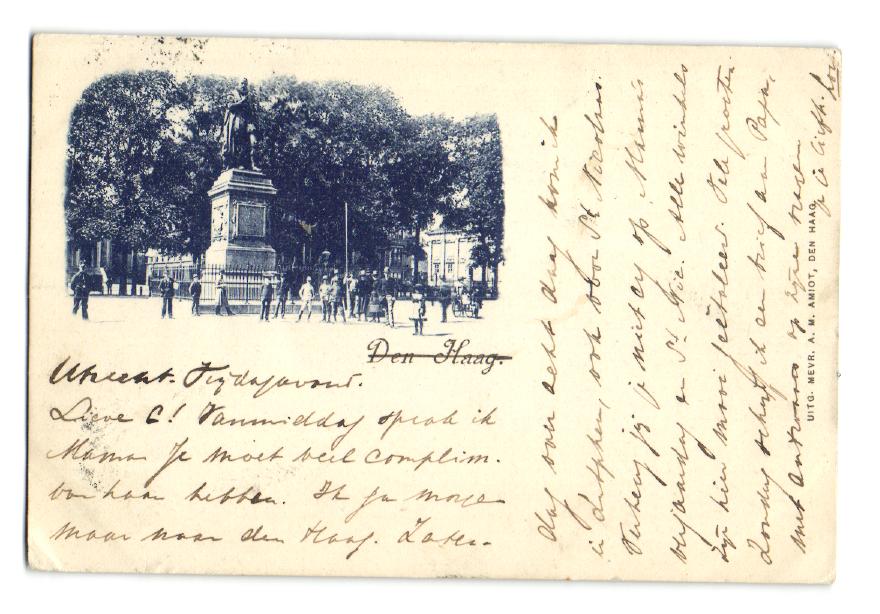 Den Haag.
Utrecht. Vrijdagavond.
Lieve C! Vanmiddag sprak ik
Mama. Je moet veel complim.
van haar hebben. Ik ga morgen
maar naar den Haag. Zater-
dag over acht dag kom ik
in Zutphen, ook voor St. Nicolaas.
jij niet op Mama's
verjaardag en St. Nic. Alle winkels
zijn hier mooi geëtaleerd.
Zondag schrijf ik een brief aan Papa,
met antwoord op zijne
UITG. MEVR. A. M. AMIOT, DEN HAAG.